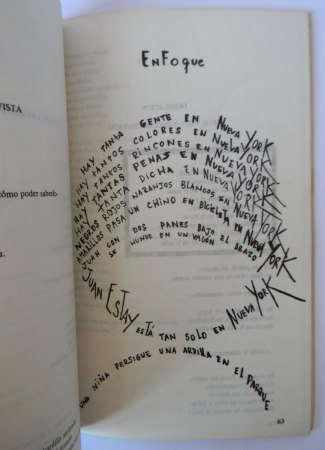 VISTA
cómo poder saberlo-
EnFoque
HAY TANTA GENTE EN NUEVA YORK
HAY TANTOS COLORES EN NUEVA YORK
HAY TANTOS RINCONES EN NUEVA YORK
HAY TANTAS PENAS EN NUEVA YORK
HAY TANTA DICHA EN NUEVA YORK
NEGROS ROJOS NARANJOS BLANCOS EN NUEVA YORK
AMARILLOS PASA UN CHINO EN BICICLETA EN NUEVA YORK
JUAN CON DOS PANES BAJO EL BRAZO
SE HUNDE EN UN VAGÓN
JUAN ESTAY ESTÁ TAN SOLO EN NUEVA YORK
UNA NIÑA PERSIGUE UNA ARDILLA EN EL PARQUE
63